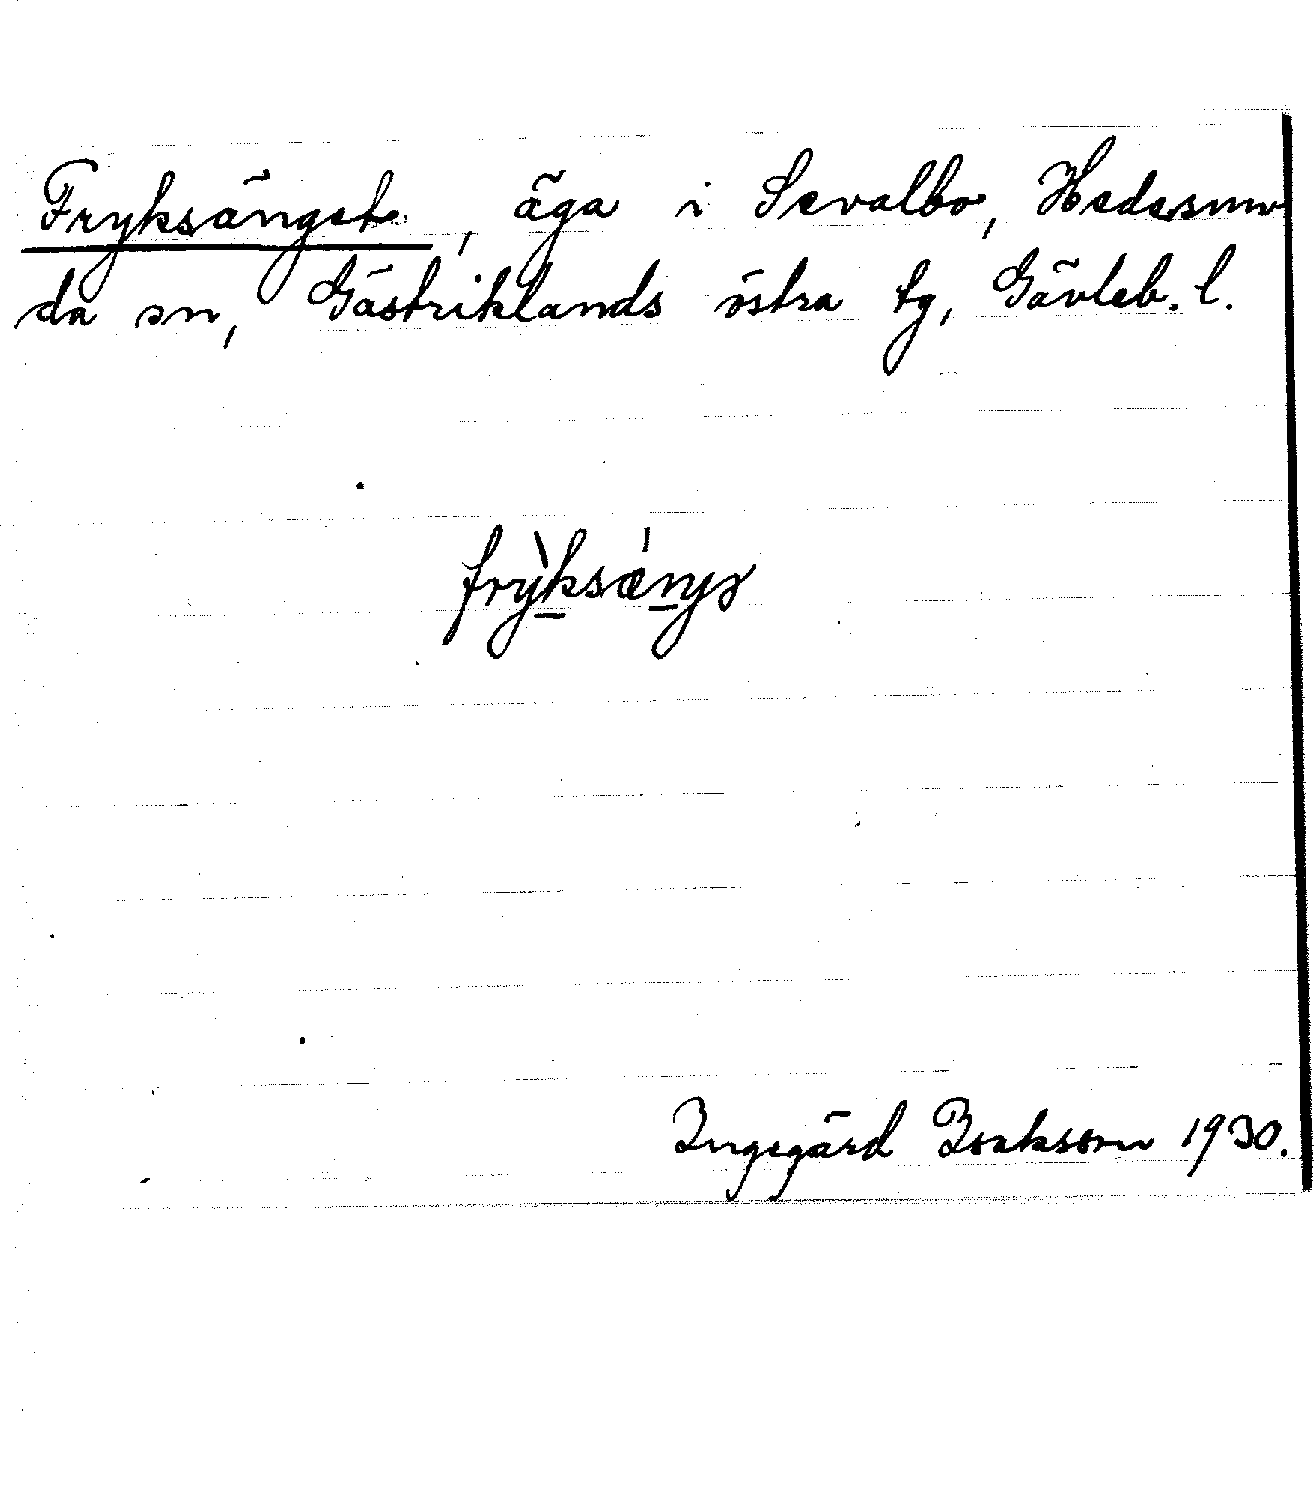 Fryksänget, äga i Sevalbo, Hedesun
da sn, Gästriklands östra tg, Gävleb. l.
frỳksǽŋə
Ingegärd Isaksson 1930.